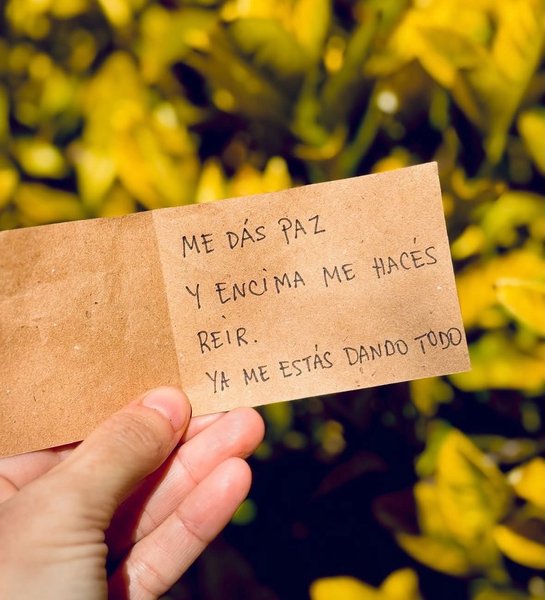 ME DÁS PAZ
Y ENCIMA ME HACÉS
REÍR.
YA ME ESTÁS DANDO TODO